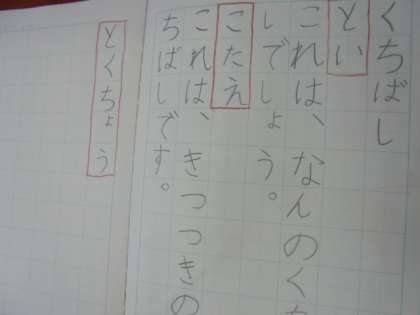 くちばし
とい
これは、なんのく
しでしょう。
こたえ
これは、きつつきの
ちばしです。
とくちょう